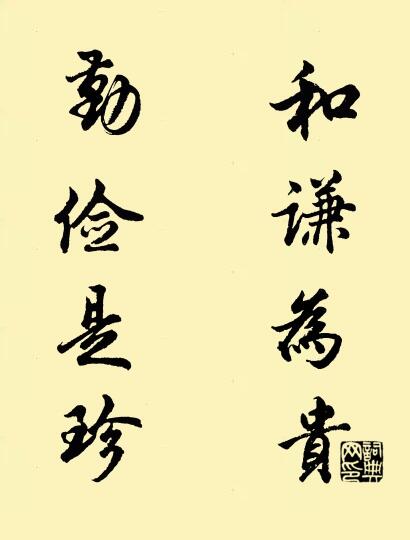 和謙為貴
勤俭是珍
詞典网印